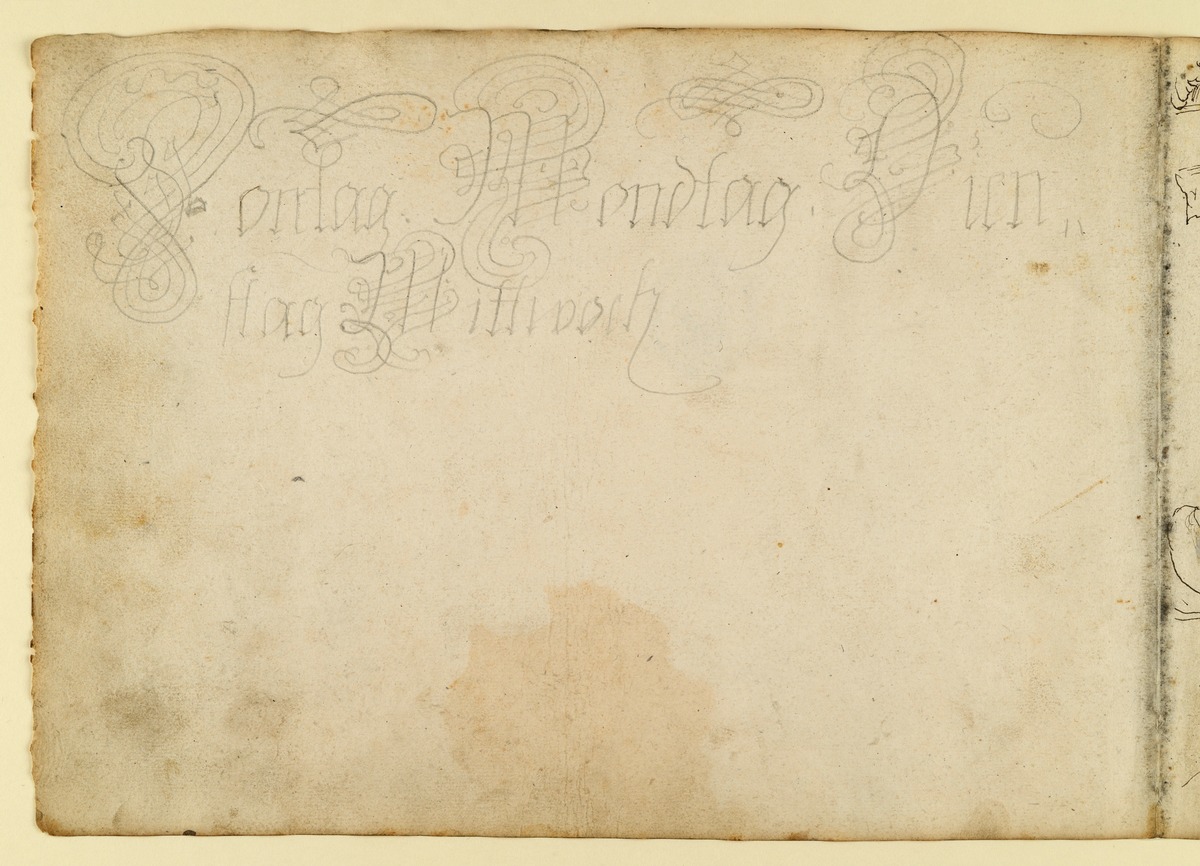 Sontag. Mondtag Dien„
stag Mittwoch